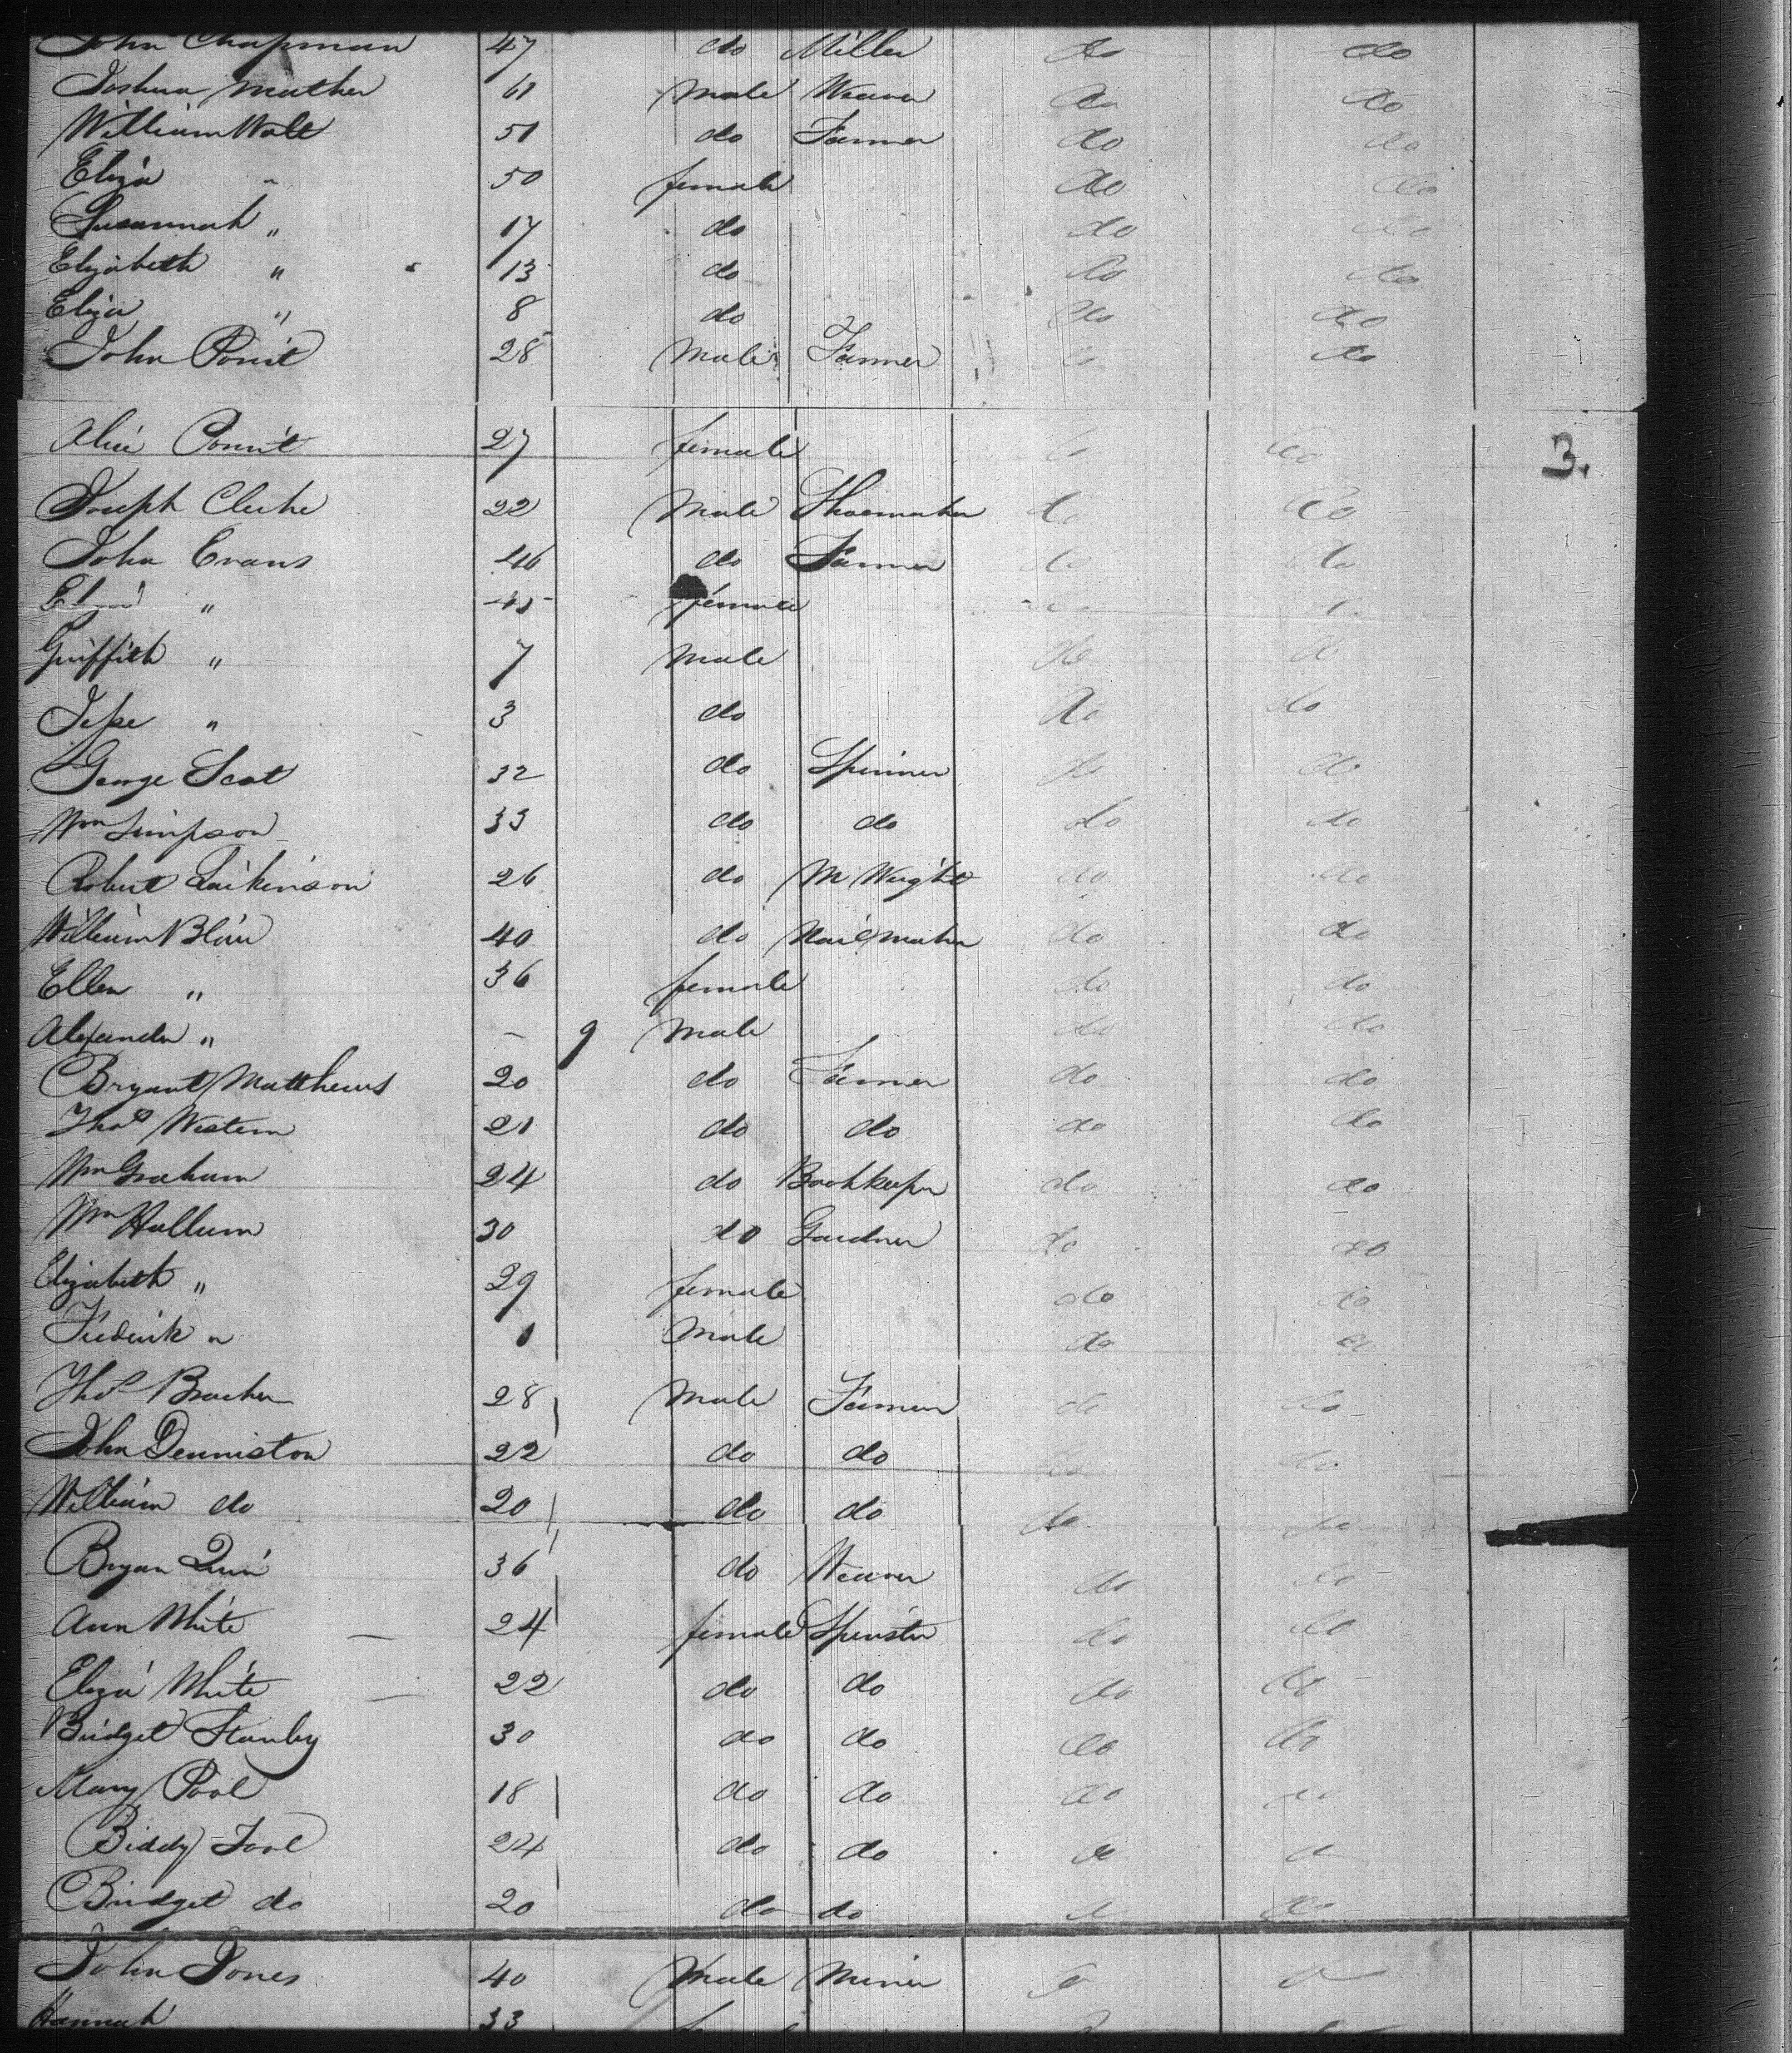 John Chapman 47 do Miller do do
Joshua Mather 61 male Weaver do do
William Wall 51 do Farmer do do
Eliza " 50 female do do
Susannah " 17 do do do
Elizabeth " 13 do do do
Eliza " 8 do do do
John 28 Male Farmer do do
Alice 27 female do do
3.
Joseph Clerke 22 Male Shoemaker do do
John Evans 46 do Farmer do do
" female
Griffith " 7 Male do do
Jesse " 3 do do do
George Scot 32 do Spinner do do
Wm Simpson 33 do do do do
Robert 26 do M Wright do do
William Blair 40 do Nailmaker do do
Ellen " 36 female do do
Alexander " - 9 Male do do
Bryant Matthews 20 do Farmer do do
Thos Western 21 do do do do
Wm Graham 24 do Bookkeeper do do
Wm Hallum 30 do Gardner do do
Elizabeth " 29 female do do
Frederick " 1 Male do do
Thos Bracher 28 Male Farmer do do
John Denniston 22 do do do do
William do 20 do do do do
Bryan Quin 36 do Weaver do do
Ann White 24 female Spinster do do
Eliza White 22 do do do do
Bridget Stanley 30 do do do do
Mary Pool 18 do do do do
Biddy Tool 24 do do do do
Bridget do 20 do do do do
John Jones 40 Male Miner do do
Hannah 33